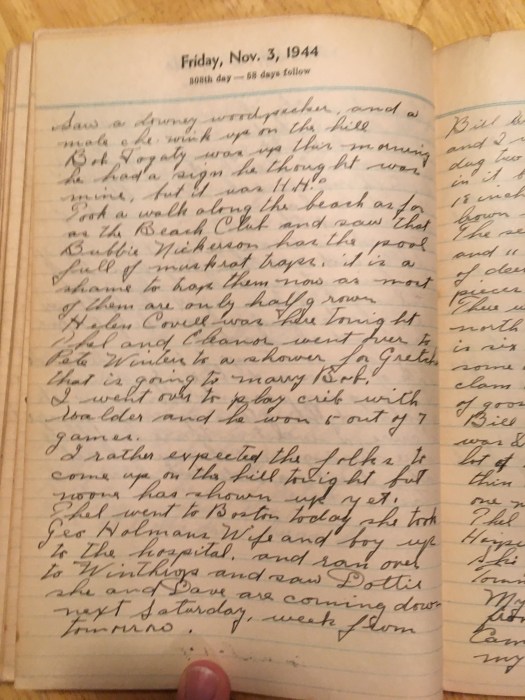 Friday, Nov. 3, 1944
308th day — 58 days follow
Saw a downey woodpecker, and a
male che wink up on the hill
Bob Fogaty was up this morning
he had a sign he thought was
mine, but it was H.H.s
Took a walk along the beach as far
as the Beach Club and saw that
Bubbie Nickerson has the pool
full of muskrat traps, it is a
shame to trap them now as most
of them are only half grown
Helen Covell was here tonight
Phel and Eleanor went over to
Pete Winters to a shower for
that is going to marry Bob.
I went over to play crib with
Walder and he won 5 out of 7
games.
I rather expected the folks to
come up on the hill tonight but
noone has shown up yet.
Phel went to Boston today she took
Geo Holmans Wife and boy up
to the hospital, and ran over
to Winthrop and saw Dottie
she and Dave are coming down
next Saturday, week from
tomorrow.
Bill
and I
dug two
in it
18 inch
brown
The se
and 11
of dee
pieces
There w
north
is six
some
clam
of goos
Bill
was
lot of
thin
one
Phel
She
Town
My
from
Cam
my